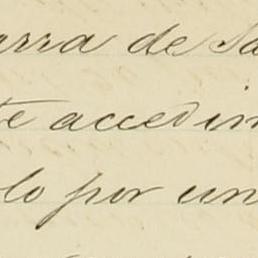 arra de Sa
te accedim
lo por un